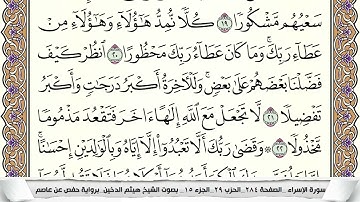 سَعْيُهُم مَّشْكُورًا ١٩ كُلًّا نُّمِدُّ هَٰٓؤُلَآءِ وَهَٰٓؤُلَآءِ مِنْ
عَطَآءِ رَبِّكَ ۚ وَمَا كَانَ عَطَآءُ رَبِّكَ مَحْظُورًا ٢٠ ٱنظُرْ كَيْفَ
فَضَّلْنَا بَعْضَهُمْ عَلَىٰ بَعْضٍ ۚ وَلَلْءَاخِرَةُ أَكْبَرُ دَرَجَٰتٍ وَأَكْبَرُ
تَفْضِيلًا ٢١ لَّا تَجْعَلْ مَعَ ٱللَّهِ إِلَٰهًا ءَاخَرَ فَتَقْعُدَ مَذْمُومًا
مَّخْذُولًا ٢٢ ۞ وَقَضَىٰ رَبُّكَ أَلَّا تَعْبُدُوٓا۟ إِلَّآ إِيَّاهُ وَبِٱلْوَٰلِدَيْنِ إِحْسَٰنًا ۚ
سورة الإسراء _ الصفحة ٢٨٤ _ الحزب ٢٩ _ الجزء ١٥ _ بصوت الشيخ هيثم الدخين _ برواية حفص عن عاصم